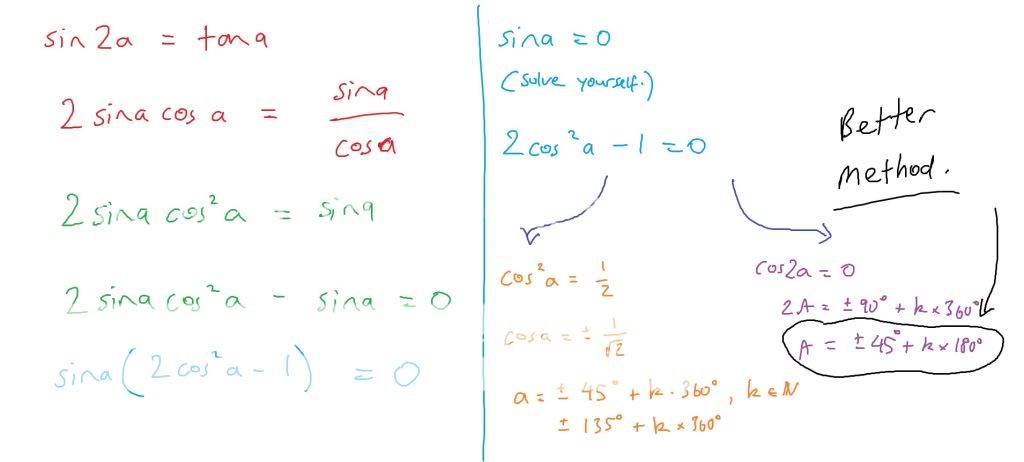 sin 2a = tan a
2 sina cos a = sina / cosa
2 sina cos²a = sina
2 sina cos²a - sina = 0
sina (2cos²a - 1) = 0
sina = 0
(solve yourself.)
2cos²a - 1 = 0
cos²a = 1/2
cosa = ± 1/√2
a = ± 45° + k · 360°, k ∈ N
± 135° + k × 360°
Better
method.
cos2a = 0
2A = ± 90° + k × 360°
A = ± 45° + k × 180°